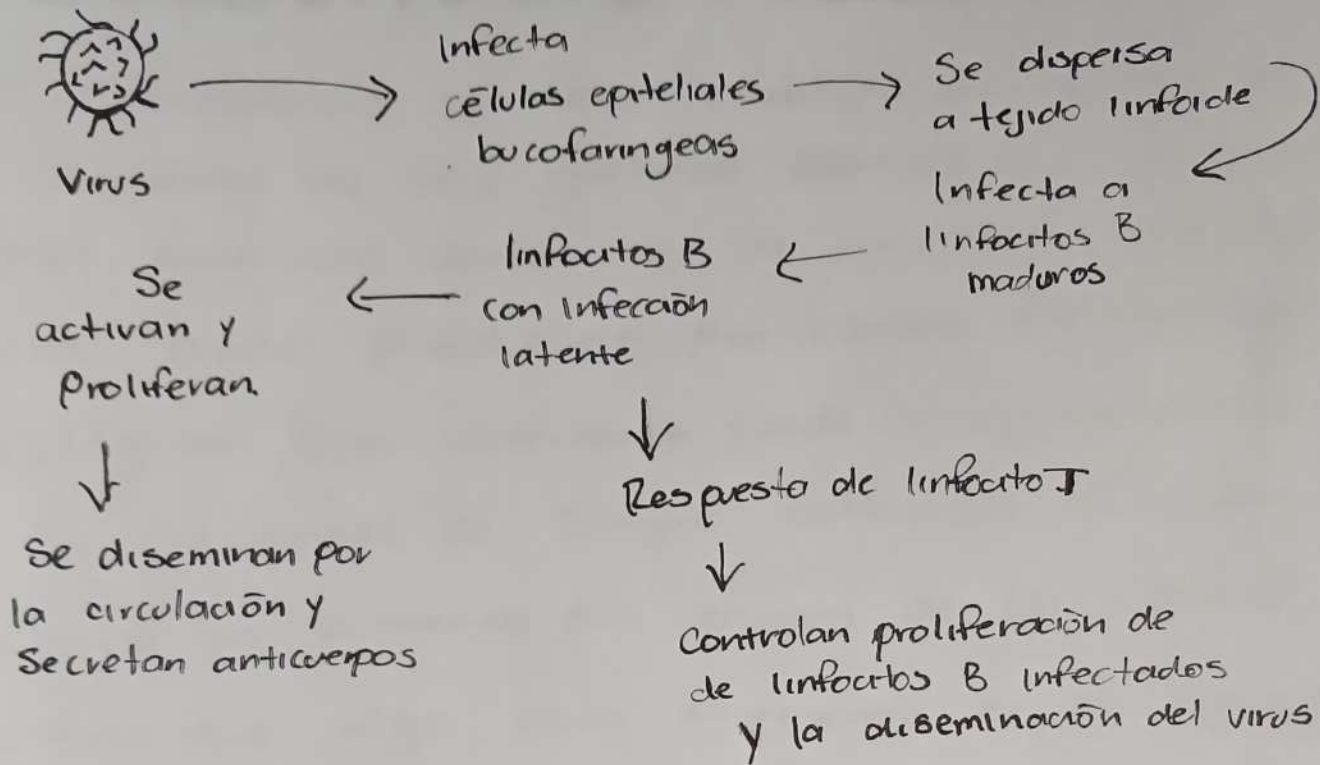 Virus
Infecta
células epiteliales
bucofaringeas
Se dispersa
a tejido linfoide
Infecta a
linfocitos B
maduros
linfocitos B
con infección
latente
Se
activan y
Proliferan.
Se diseminan por
la circulación y
Secretan anticuerpos
Respuesta de linfocito T
Controlan proliferación de
de linfocitos B infectados
y la diseminación del virus